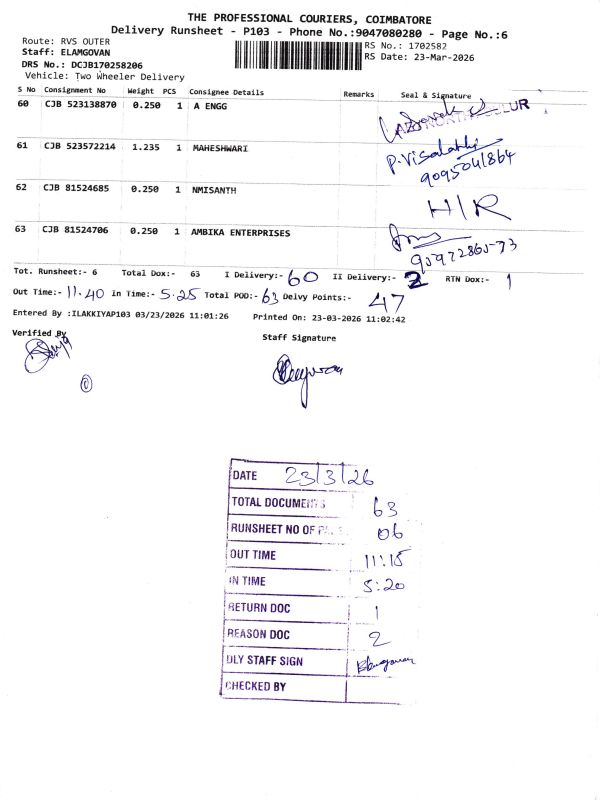 THE PROFESSIONAL COURIERS, COIMBATORE
Delivery Runsheet - P103 - Phone No.:9047080280 - Page No.:6
Route: RVS OUTER
RS No.: 1702582
Staff: ELAMGOVAN
RS Date: 23-Mar-2026
DRS No.: DCJB170258206
Vehicle: Two Wheeler Delivery
S No Consignment No Weight PCS Consignee Details Remarks Seal & Signature
60 CJB 523138870 0.250 1 A ENGG
61 CJB 523572214 1.235 1 MAHESHWARI P. Visalakhi
9095041864
62 CJB 81524685 0.250 1 NMISANTH H/R
63 CJB 81524706 0.250 1 AMBIKA ENTERPRISES
Tot. Runsheet:- 6 Total Dox:- 63 I Delivery:- 60 II Delivery:- 2 RTN Dox:- 1
Out Time:- 11.40 In Time:- 5.25 Total POD:- 63 Delvy Points:- 47
Entered By :ILAKKIYAP103 03/23/2026 11:01:26 Printed On: 23-03-2026 11:02:42
Verified By
Staff Signature
DATE 23/3/26
TOTAL DOCUMENTS 63
RUNSHEET NO OF 06
OUT TIME 11:15
IN TIME 5:20
RETURN DOC 1
REASON DOC 2
DLY STAFF SIGN
CHECKED BY